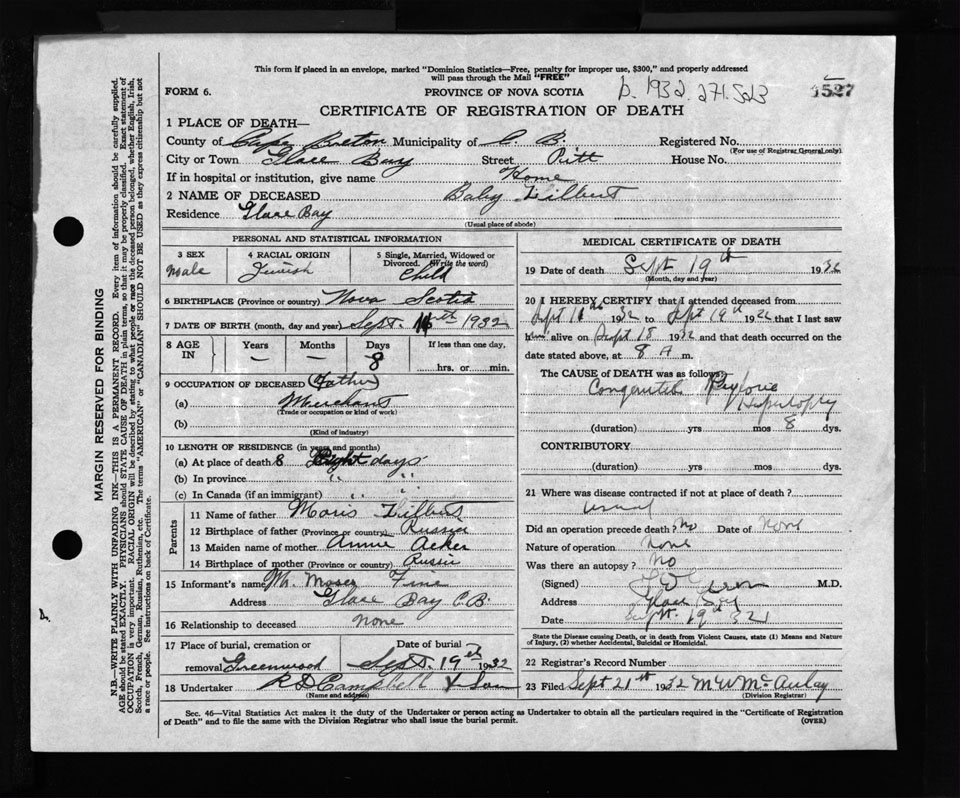 This form if placed in an envelope, marked "Dominion Statistics—Free, penalty for improper use, $300," and properly addressed
will pass through the Mail "FREE"
FORM 6. PROVINCE OF NOVA SCOTIA b. 1932. 271.
1527
CERTIFICATE OF REGISTRATION OF DEATH
1 PLACE OF DEATH—
County of Cape Breton Municipality of C. B. Registered No.
(For use of Registrar General only)
City or Town Glace Bay Street Pitt House No.
If in hospital or institution, give name Home
2 NAME OF DECEASED Baby
Residence Glace Bay
(Usual place of abode)
PERSONAL AND STATISTICAL INFORMATION
3 SEX 4 RACIAL ORIGIN 5 Single, Married, Widowed or
Divorced. (Write the word)
Male Jewish Child
6 BIRTHPLACE (Province or country) Nova Scotia
7 DATE OF BIRTH (month, day and year) Sept. 1932
8 AGE IN Years Months Days If less than one day,
— — 8 hrs. or min.
9 OCCUPATION OF DECEASED (Father)
(a) Merchant
(Trade or occupation or kind of work)
(b)
(Kind of industry)
10 LENGTH OF RESIDENCE (in years and months)
(a) At place of death 8 Eight days
(b) In province " "
(c) In Canada (if an immigrant) " "
Parents
11 Name of father Moris
12 Birthplace of father (Province or country) Russia
13 Maiden name of mother Annie Acker
14 Birthplace of mother (Province or country)
15 Informant's name Mr. Moses Fine
Address Glace Bay C.B.
16 Relationship to deceased none
17 Place of burial, cremation or Date of burial
removal Greenwood Sept. 19th 1932
18 Undertaker R D Campbell & Son
(Name and address)
MEDICAL CERTIFICATE OF DEATH
19 Date of death Sept 19th 1932
(Month, day and year)
20 I HEREBY CERTIFY that I attended deceased from
Sept 1932 to Sept 19th 1932 that I last saw
him alive on Sept 18 1932 and that death occurred on the
date stated above, at 8 A m.
The CAUSE OF DEATH was as follows:
Pyloric
(duration) yrs mos 8 dys.
CONTRIBUTORY
(duration) yrs. mos. dys.
21 Where was disease contracted if not at place of death?
Did an operation precede death? No Date of None
Nature of operation None
Was there an autopsy? No
(Signed) M.D.
Address Glace Bay
Date Sept. 19th 32
State the Disease causing Death, or in death from Violent Causes, state (1) Means and Nature
of Injury, (2) whether Accidental, Suicidal or Homicidal.
22 Registrar's Record Number
23 Filed Sept 21st 1932 M W McAulay
(Division Registrar)
Sec. 46—Vital Statistics Act makes it the duty of the Undertaker or person acting as Undertaker to obtain all the particulars required in the "Certificate of Registration
of Death" and to file the same with the Division Registrar who shall issue the burial permit. (OVER)
MARGIN RESERVED FOR BINDING
N.B.—WRITE PLAINLY WITH UNFADING INK—THIS IS A PERMANENT RECORD. Every item of information should be carefully supplied.
AGE should be stated EXACTLY. PHYSICIANS should STATE CAUSE OF DEATH in plain terms, so that it may be properly classified. Exact statement of
OCCUPATION is very important. RACIAL ORIGIN will be described by stating to what people or race the deceased person belonged, whether English, Irish,
Scotch, French, German, Russian, Ruthenian, etc. The terms "AMERICAN" or "CANADIAN" SHOULD NOT BE USED as they express citizenship but not
a race or people. See instructions on back of Certificate.